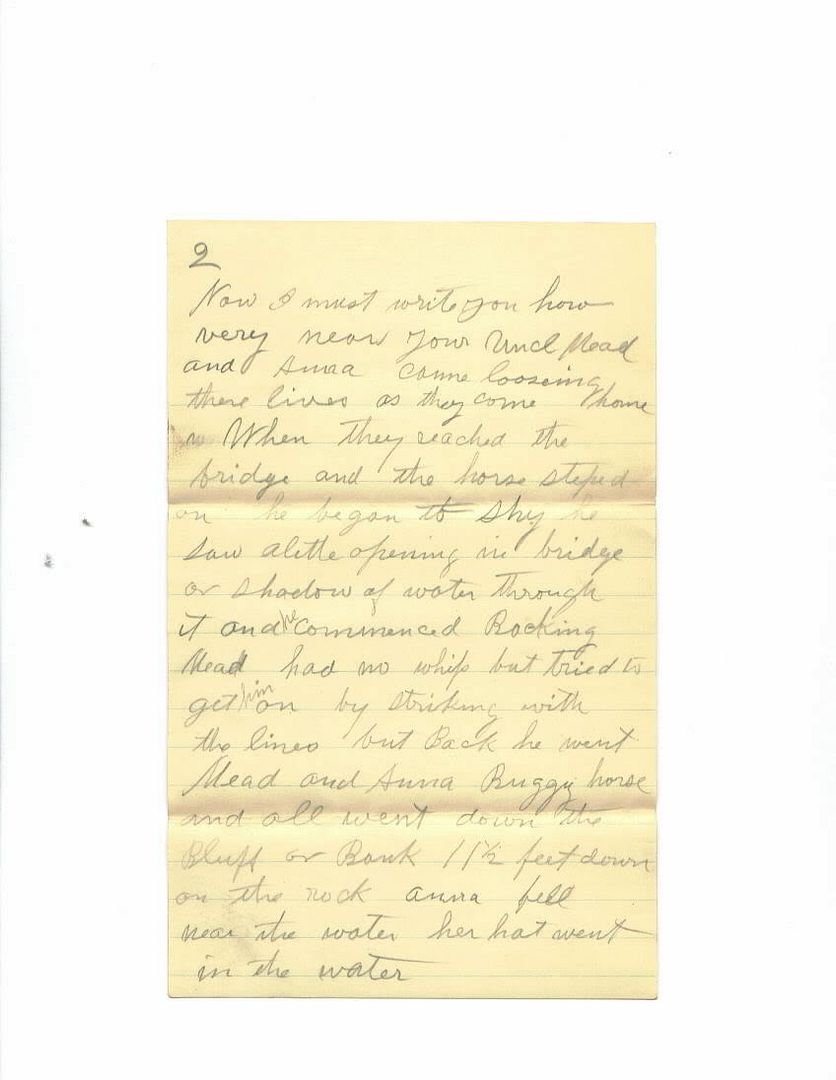 2
Now I must write you how
very near your Uncl Mead
and Anna come looseing
there lives as they come home
When they reached the
bridge and the horse steped
on he began to shy he
saw alittle opening in bridge
or shadow of water through
it and he commenced Backing
Mead had no whip but tried to
get him on by striking with
the lines but Back he went
Mead and Anna Buggy horse
and all went down the
Bluff or Bank 11½ feet down
on the rock anna fell
near the water her hat went
in the water